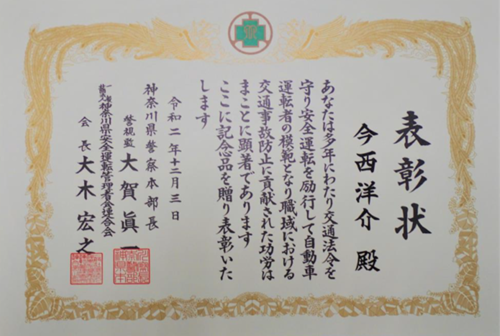 表彰状
今西洋介 殿
あなたは多年にわたり交通法令を
守り安全運転を励行して自動車
運転者の模範となり職域における
交通事故防止に貢献された功労は
まことに顕著であります
ここに記念品を贈り表彰いた
します
令和二年十二月三日
神奈川県警察本部長
警視監 大賀眞一
一般社団法人神奈川県安全運転管理者会連合会
会長 大木宏之